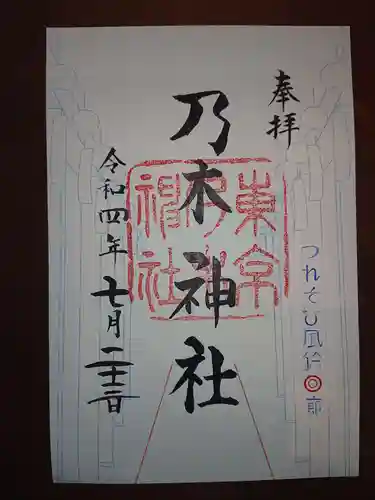 奉拝
つれそひ風鈴◎廊
乃木神社
東京乃木神社
令和四年七月二十三日